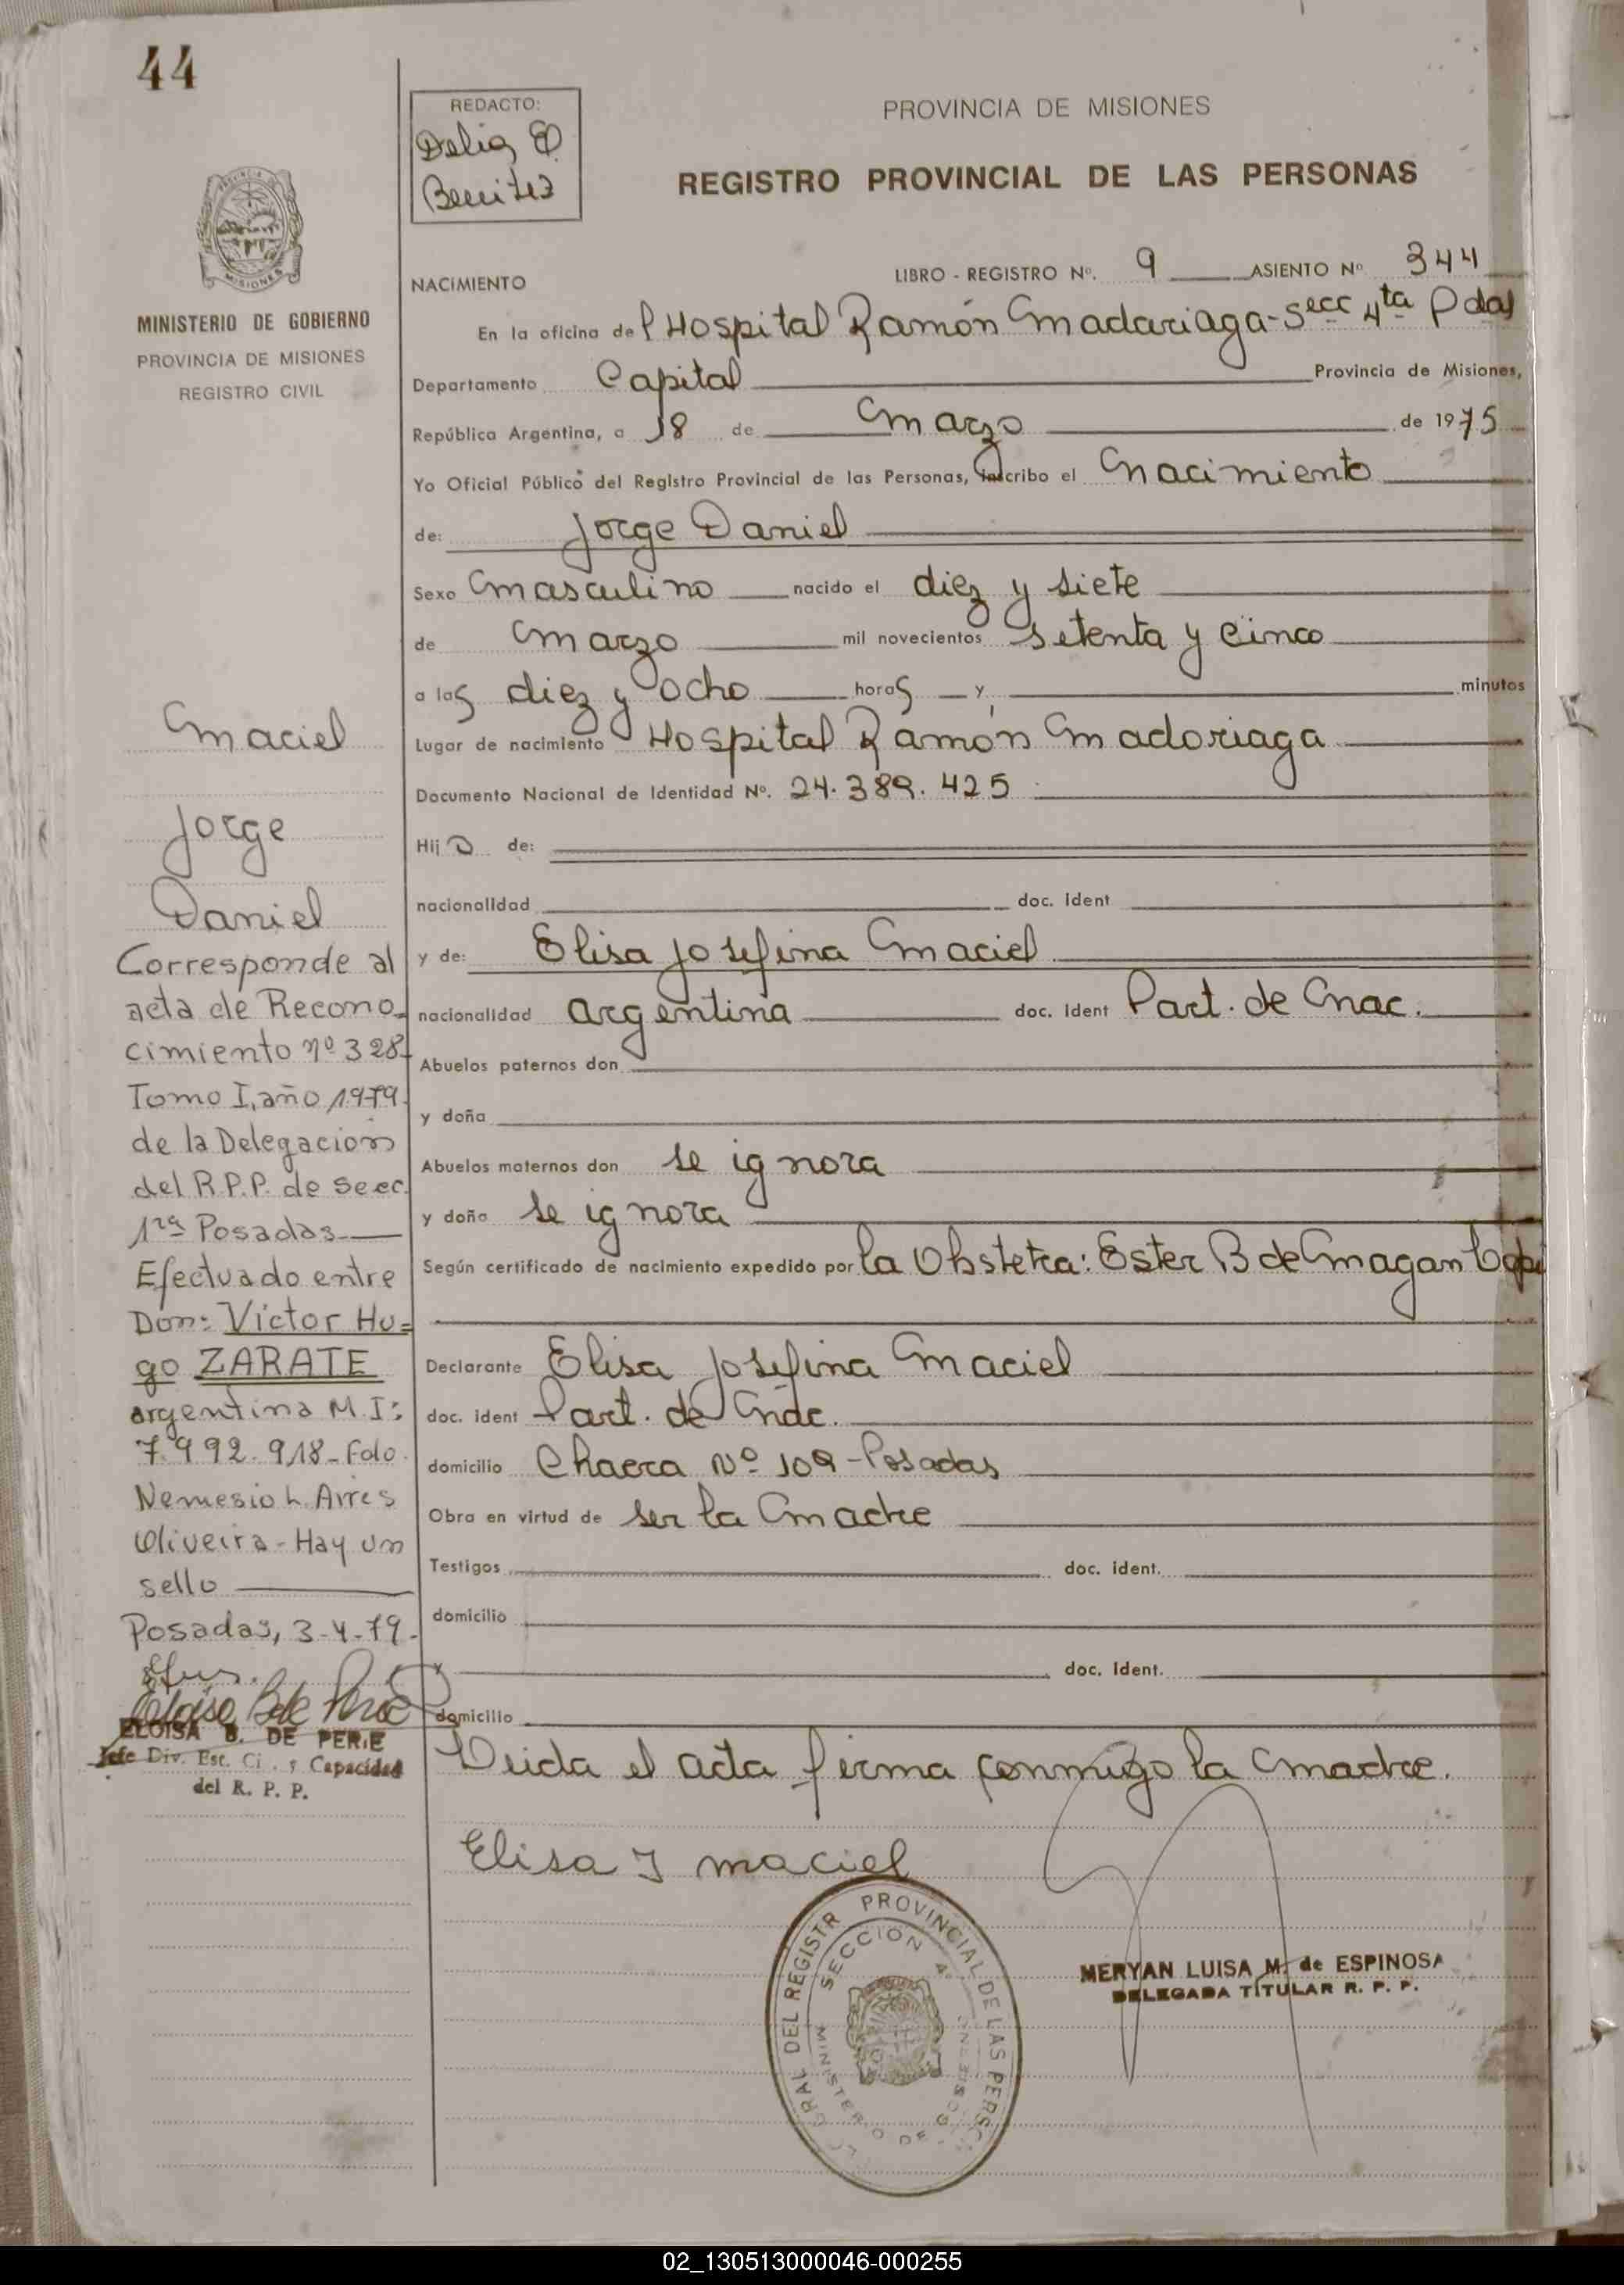 44
REDACTO:
Delia E.
Benitez
PROVINCIA DE MISIONES
REGISTRO PROVINCIAL DE LAS PERSONAS
MINISTERIO DE GOBIERNO
PROVINCIA DE MISIONES
REGISTRO CIVIL
NACIMIENTO
LIBRO - REGISTRO Nº. 9 ASIENTO Nº 344
En la oficina del Hospital Ramón Madariaga-Secc 4ta Pdas
Departamento Capital Provincia de Misiones,
República Argentina, a 18 de Marzo de 1975
Yo Oficial Público del Registro Provincial de las Personas, inscribo el Nacimiento
de: Jorge Daniel
Sexo Masculino nacido el diez y siete
de Marzo mil novecientos setenta y cinco
a las diez y ocho horas y, minutos
Lugar de nacimiento Hospital Ramón Madoriaga
Documento Nacional de Identidad Nº. 24.389.425
Hijo de:
nacionalidad doc. Ident
y de: Elisa Josefina Maciel
nacionalidad argentina doc. Ident Part. de Nac.
Abuelos paternos don
y doña
Abuelos maternos don se ignora
y doña se ignora
Según certificado de nacimiento expedido por la Obstetra: Ester B de Magan
Declarante Elisa Josefina Maciel
doc. ident Part. de Nac.
domicilio Chacra Nº 109-Posadas
Obra en virtud de ser la Madre
Testigos doc. ident.
domicilio
y doc. ident.
domicilio
Leida el acta firma conmigo la Madre.
Elisa J maciel
MERYAN LUISA M. de ESPINOSA
DELEGADA TITULAR R. P. P.
PROVINCIAL DE LAS PERSO
GRAL DEL REGISTR
SECCION 4ª
MINISTERIO DE GOBIERNO
Maciel
Jorge
Daniel
Corresponde al
acta de Recono-
cimiento nº 328-
Tomo I, año 1979.
de la Delegación
del R.P.P. de secc.
1ra Posadas
Efectuado entre
Don: Víctor Hu=
go ZARATE
argentina M.I:
7.992.918-Fdo.
Nemesio L. Aires
Oliveira-Hay un
sello
Posadas, 3-4-79.
ELOISA B. DE PERIE
Jefe Div. Est. Ci. y Capacidad
del R. P. P.
02_130513000046-000255